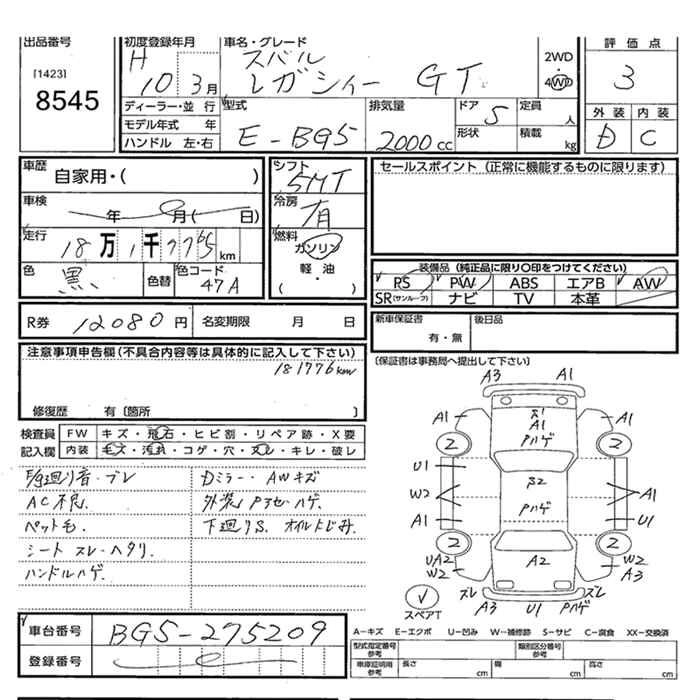 出品番号
[1423]
8545
初度登録年月
H 10 3月
車名・グレード
スバル
レガシィー GT
2WD
・
4WD
評価点
3
外装 内装
D C
ディーラー・並行
モデル年式 年
ハンドル 左・右
型式
E-BG5
排気量
2000cc
ドア 5
形状
定員 人
積載 kg
車歴 自家用・( )
車検 年 月( 日)
走行 18万1千776.5km
色 黒 色替 色コード 47A
シフト
5MT
冷房
有
燃料
ガソリン
軽・油
( )
セールスポイント (正常に機能するものに限ります)
装備品 (純正品に限り〇印をつけてください)
PS PW ABS エアB AW
SR(サンルーフ) ナビ TV 本革
R券 12080円 名変期限 月 日
新車保証書 有・無 後日品
(保証書は事務局へ提出して下さい)
注意事項申告欄(不具合内容等は具体的に記入して下さい)
181776km
修復歴 有〔箇所 〕
検査員 FW キズ・飛石・ヒビ割・リペア跡・X要
記入欄 内装 キズ・汚れ・コゲ・穴・スレ・キレ・破レ
F/g廻り音・ブレ Dミラー・AWキズ
AC不良. 外装Pヨセ・ハゲ.
ペット毛. 下廻りS. オイルにじみ.
シート スレ・ヘタリ.
ハンドルハゲ.
A3 A1
A1 A1 A1
Pハゲ
2 2
U1
B2
W2 A1
Pハゲ
A1 U1
2 2
UA2 A2 W2
W2 A3
スレ スレ
A3 U1 Pハゲ
スペアT
車台番号 BG5-275209
登録番号
A-キズ E-エクボ U-凹み W-補修跡 S-サビ C-腐食 XX-交換済
型式指定番号 参考 類別区分番号 参考
車庫証明用 参考 長さ cm 幅 cm 高さ cm